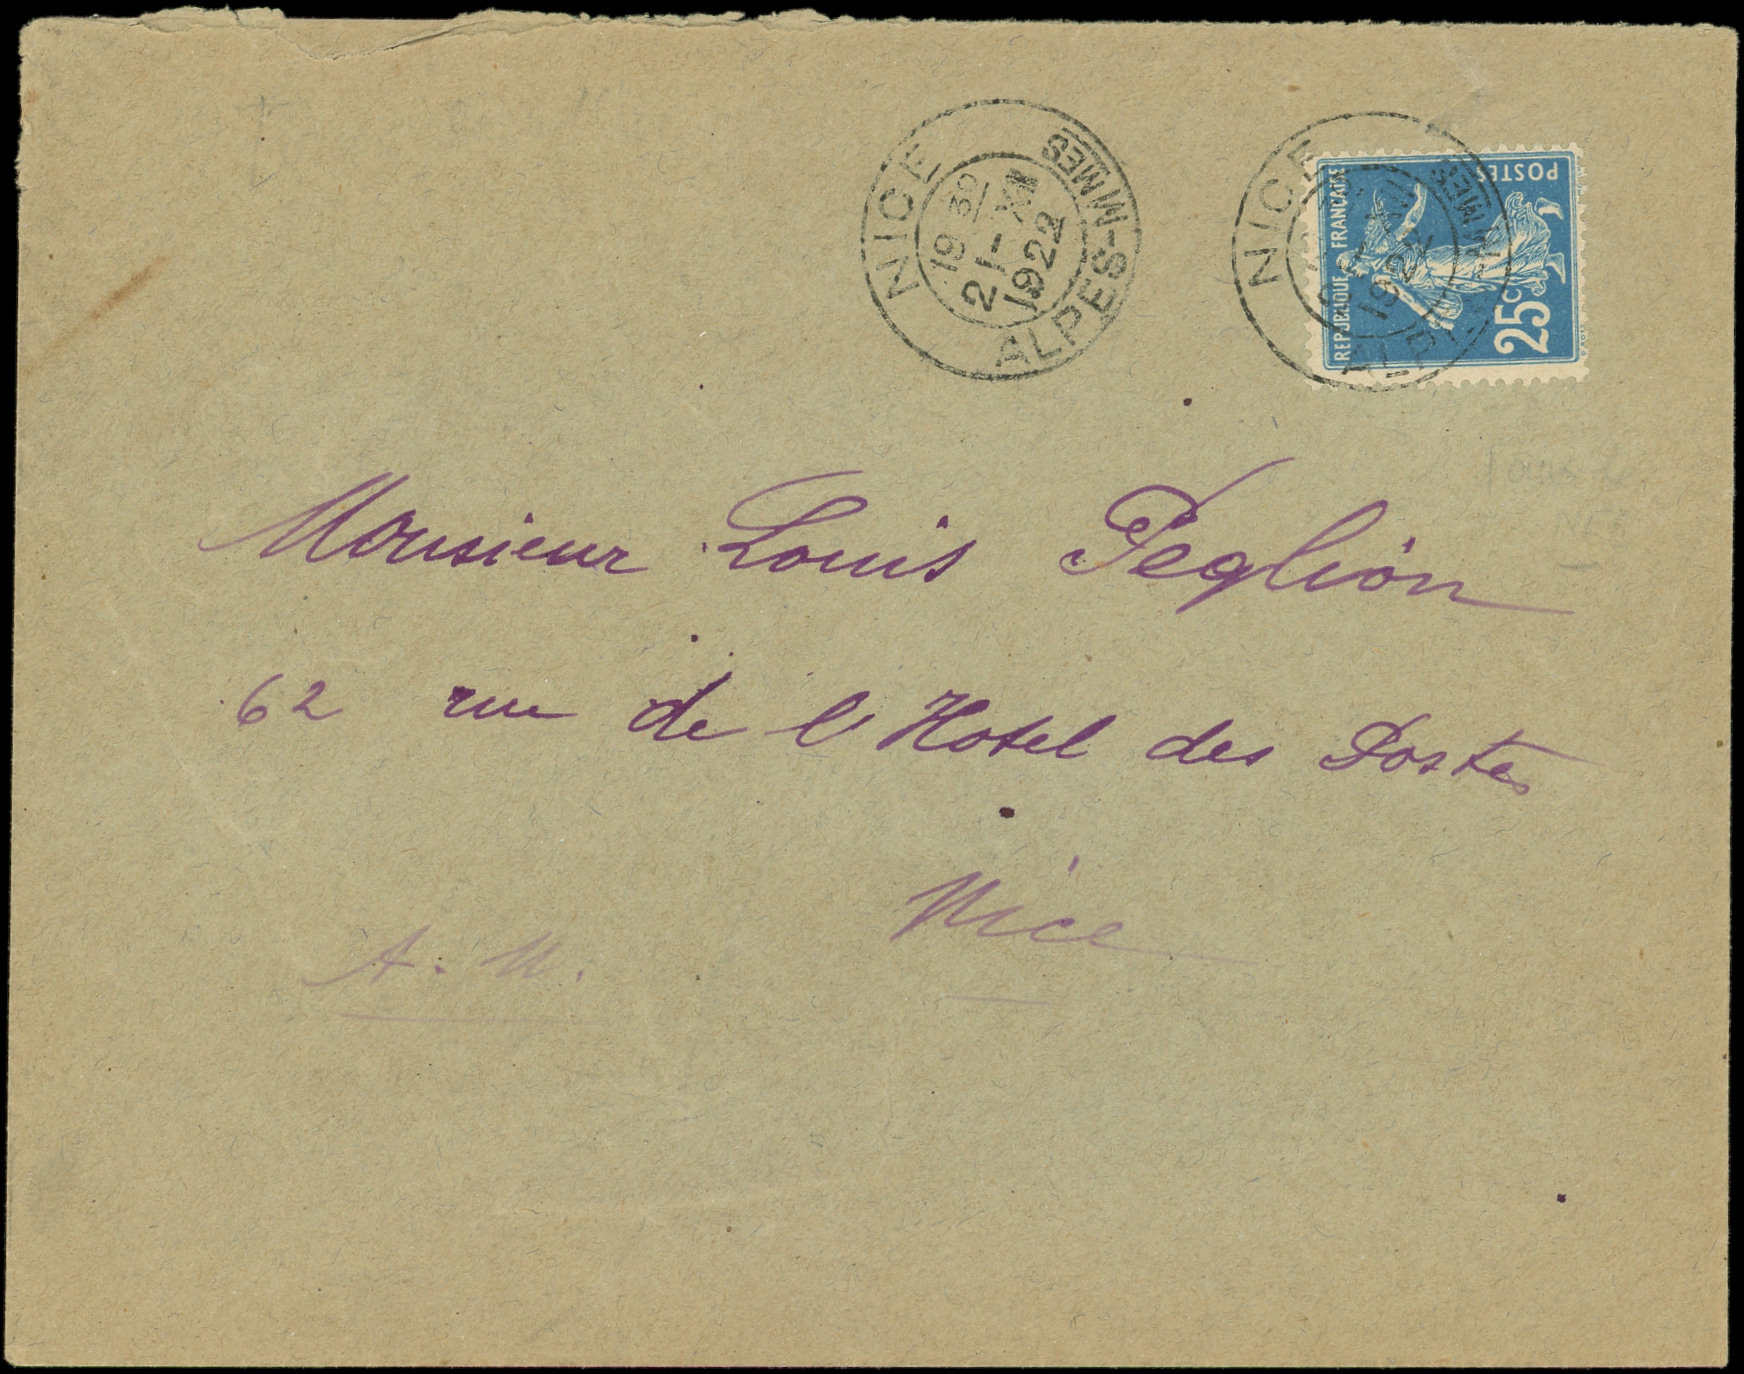 NICE
19 30
21 - XII
1922
ALPES-MMES
NICE
ALP
MMES
REPUBLIQUE FRANÇAISE
POSTES
25c
Monsieur Louis Peglion
62 rue de l'Hotel des Postes
Nice
A. M.